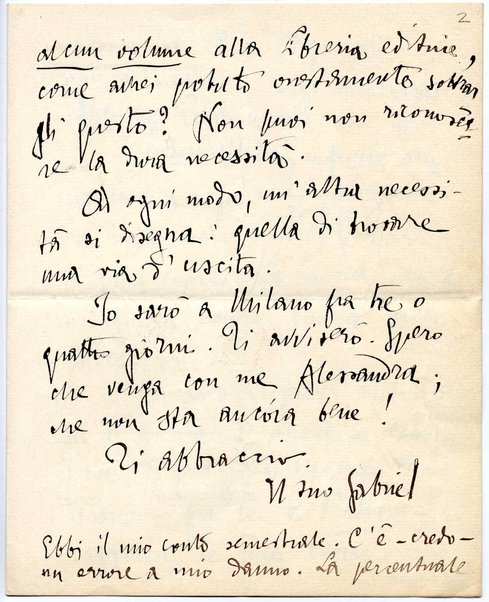 2
alcun volume alla Libreria editrice,
come avrei potuto onestamente sottrar
gli questo? Non puoi non riconosce
re la dura necessità.
Ad ogni modo, un'altra necessi-
tà si disegna: quella di trovare
una via d'uscita.
Io sarò a Milano fra tre o
quattro giorni. Ti avviserò. Spero
che venga con me Alessandra;
che non sta ancóra bene!
Ti abbraccio.
Il tuo Gabriel
Ebbi il mio conto semestrale. C'è – credo –
un errore a mio danno. La percentuale